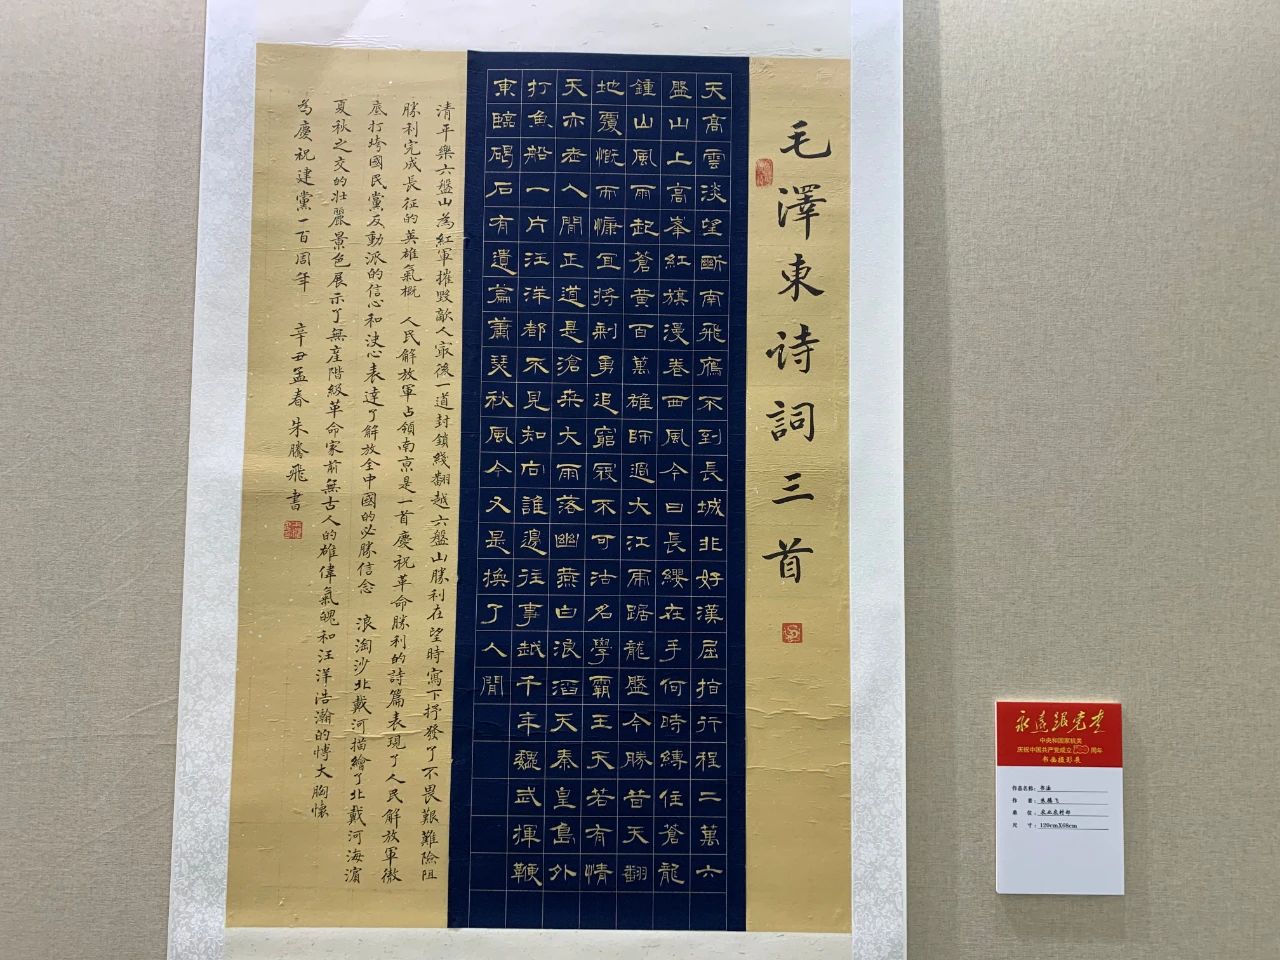 毛澤東詩詞三首
天高雲淡望斷南飛鴈不到長城非好漢屈指行程二萬六
盤山上高峯紅旗漫卷西風今日長纓在手何時縛住蒼龍
鍾山風雨起蒼黃百萬雄師過大江虎踞龍盤今勝昔天翻
地覆慨而慷宜將剩勇追窮寇不可沽名學霸王天若有情
天亦老人間正道是滄桑大雨落幽燕白浪滔天秦皇島外
打魚船一片汪洋都不見知向誰邊往事越千年魏武揮鞭
東臨碣石有遺篇蕭瑟秋風今又是換了人間
清平樂六盤山為紅軍摧毀敵人最後一道封鎖綫翻越六盤山勝利在望時寫下抒發了不畏艱難險阻
勝利完成長征的英雄氣概 人民解放軍占領南京是一首慶祝革命勝利的詩篇表現了人民解放軍徹
底打垮國民黨反動派的信心和決心表達了解放全中國的必勝信念 浪淘沙北戴河描繪了北戴河海濱
夏秋之交的壯麗景色展示了無產階級革命家前無古人的雄偉氣魄和汪洋浩瀚的博大胸懷
為慶祝建黨一百周年 辛丑孟春朱騰飛書
永远跟党走
中央和国家机关
庆祝中国共产党成立100周年
书画摄影展
作品名称：书法
作 者：朱腾飞
单 位：农业农村部
尺 寸：120cmX68cm